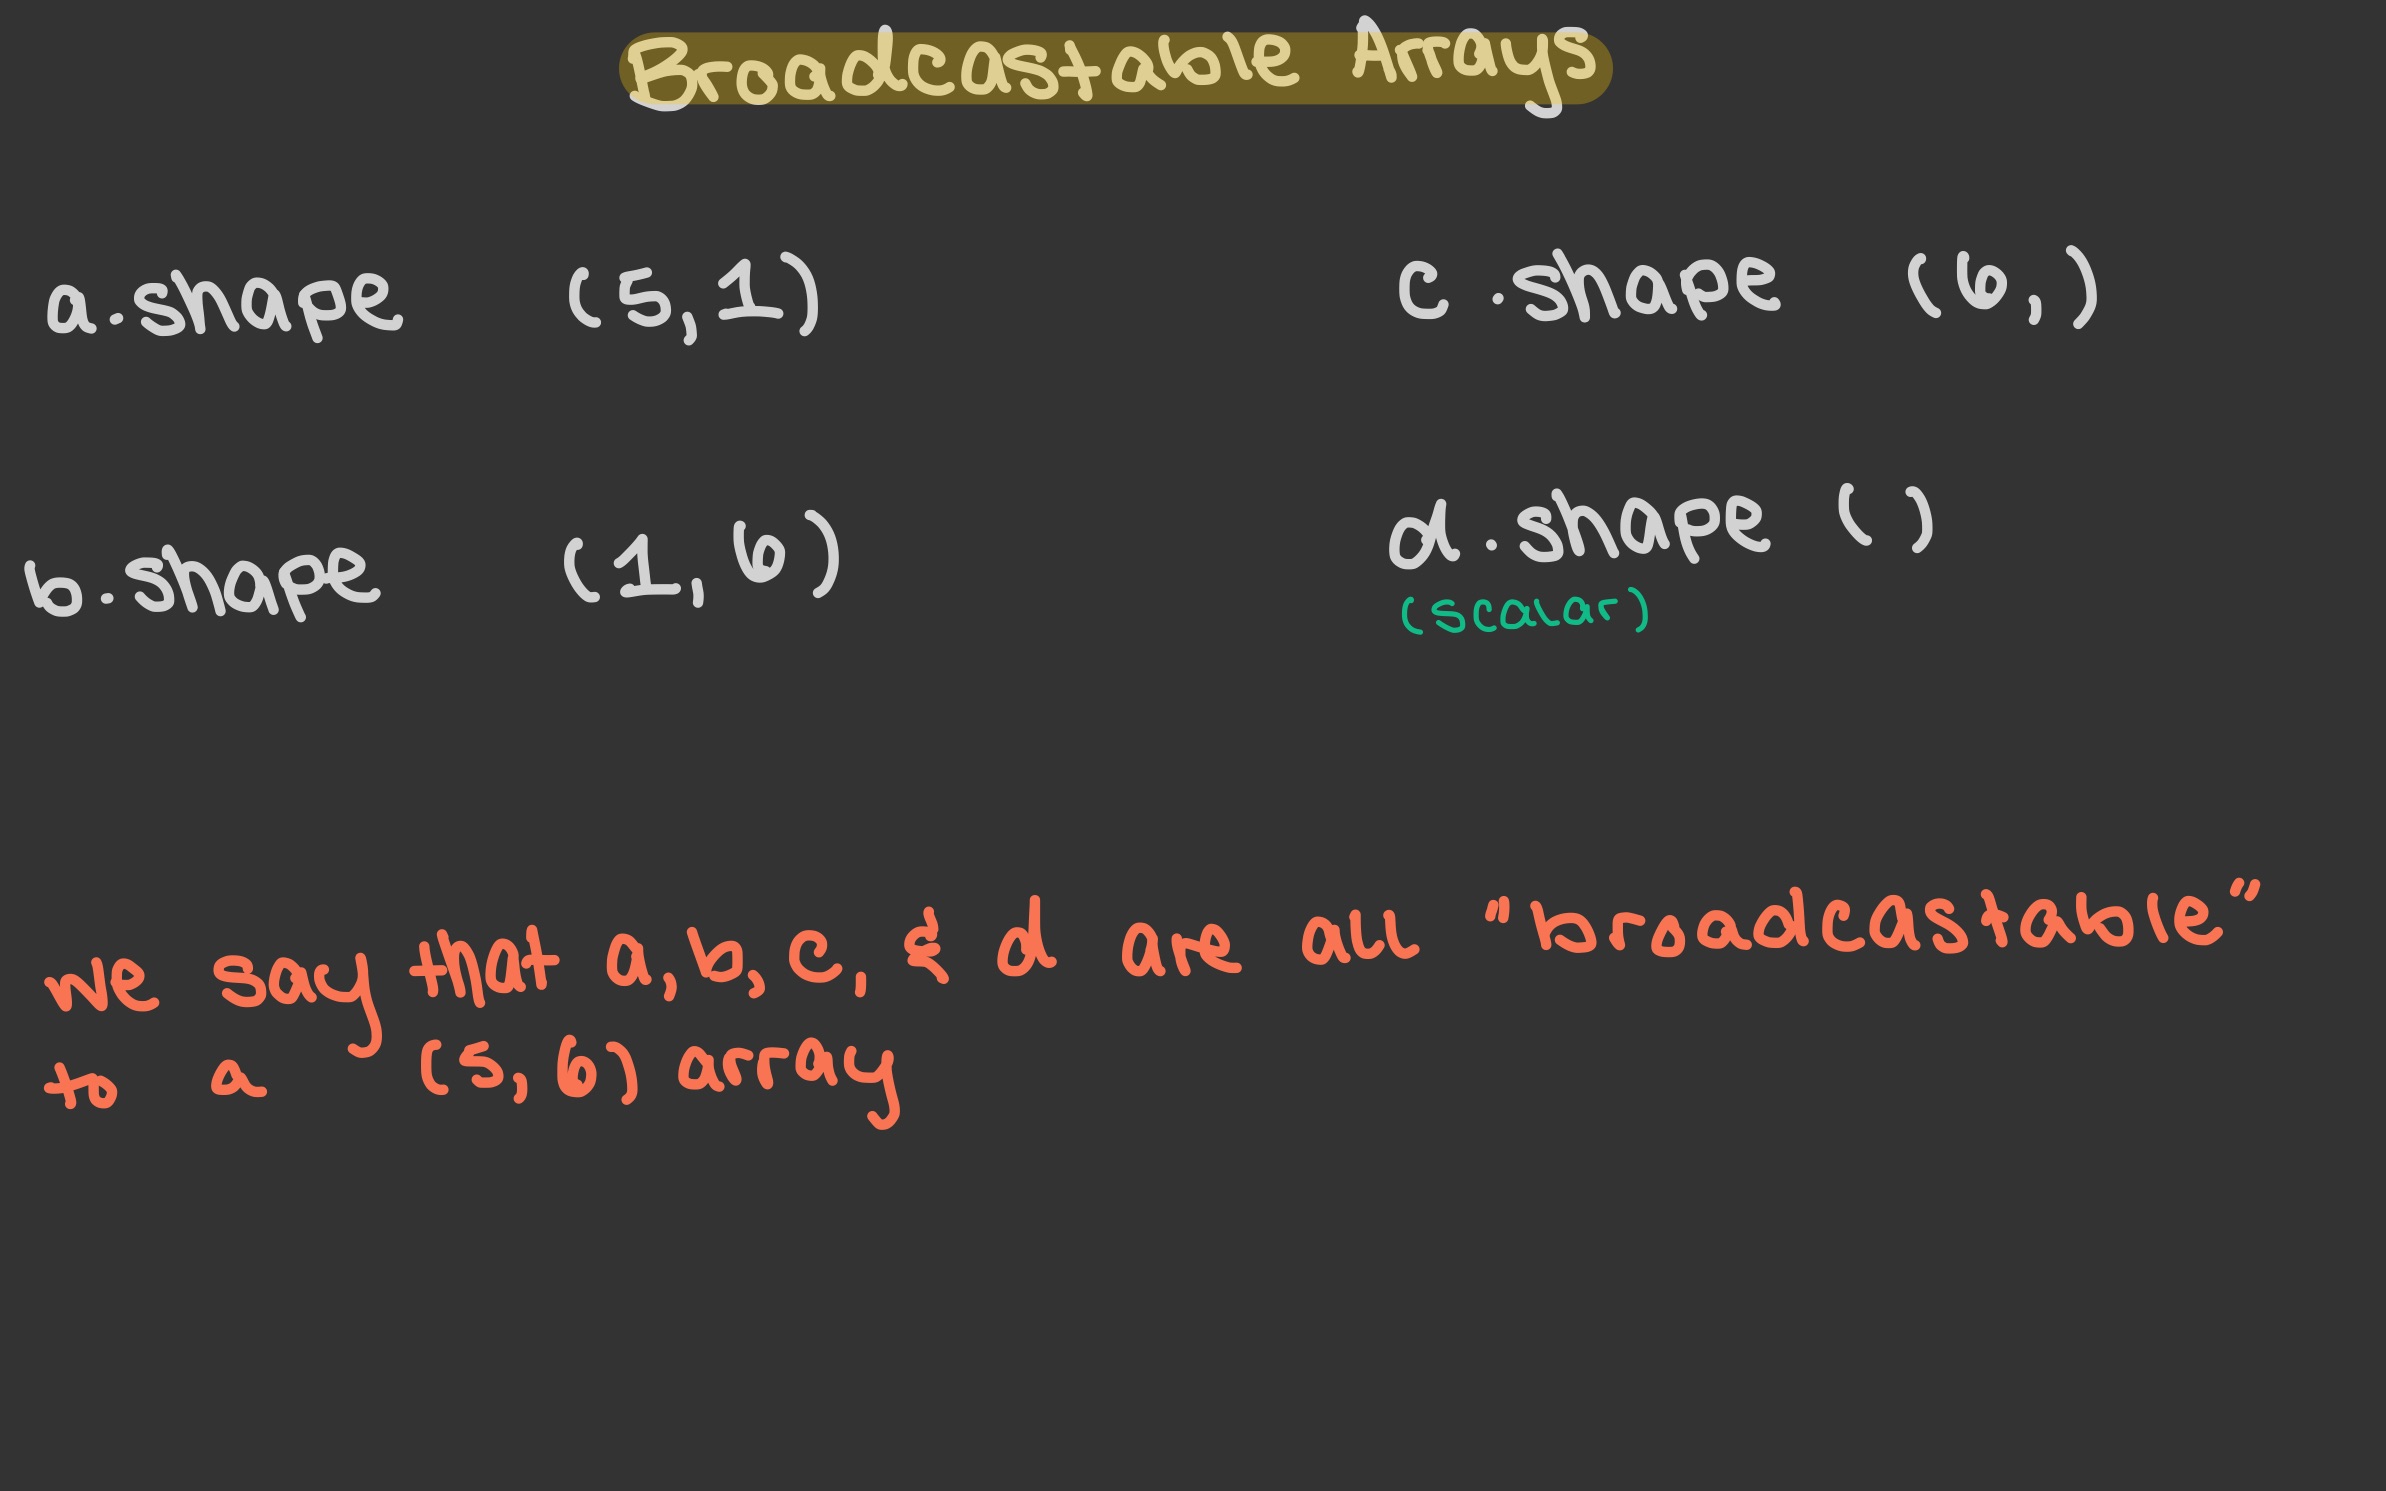 Broadcastable Arrays
a.shape (5,1)
c.shape (6,)
b.shape (1,6)
d.shape ()
(scalar)
we say that a, b, c, & d are all "broadcastable"
to a (5,6) array